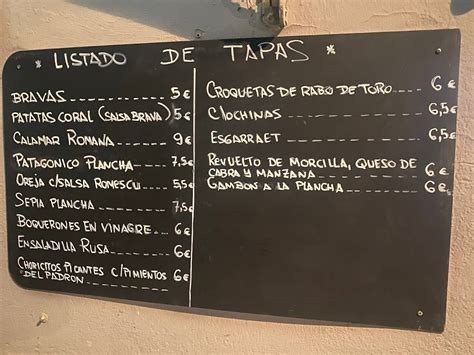 * LISTADO DE TAPAS *
BRAVAS 5€
PATATAS CORAL (SALSA BRAVA) 5€
CALAMAR ROMANA 9€
PATAGONICO PLANCHA 7,5€
OREJA C/SALSA ROMESCU 5,5€
SEPIA PLANCHA 7,5€
BOQUERONES EN VINAGRE 6€
ENSALADILLA RUSA 6€
CHORICITOS PICANTES C/PIMIENTOS
DEL PADRON 6€
CROQUETAS DE RABO DE TORO 6€
CLOCHINAS 6,5€
ESGARRAET 6,5€
REVUELTO DE MORCILLA, QUESO DE
CABRA Y MANZANA 6€
GAMBON A LA PLANCHA 6€